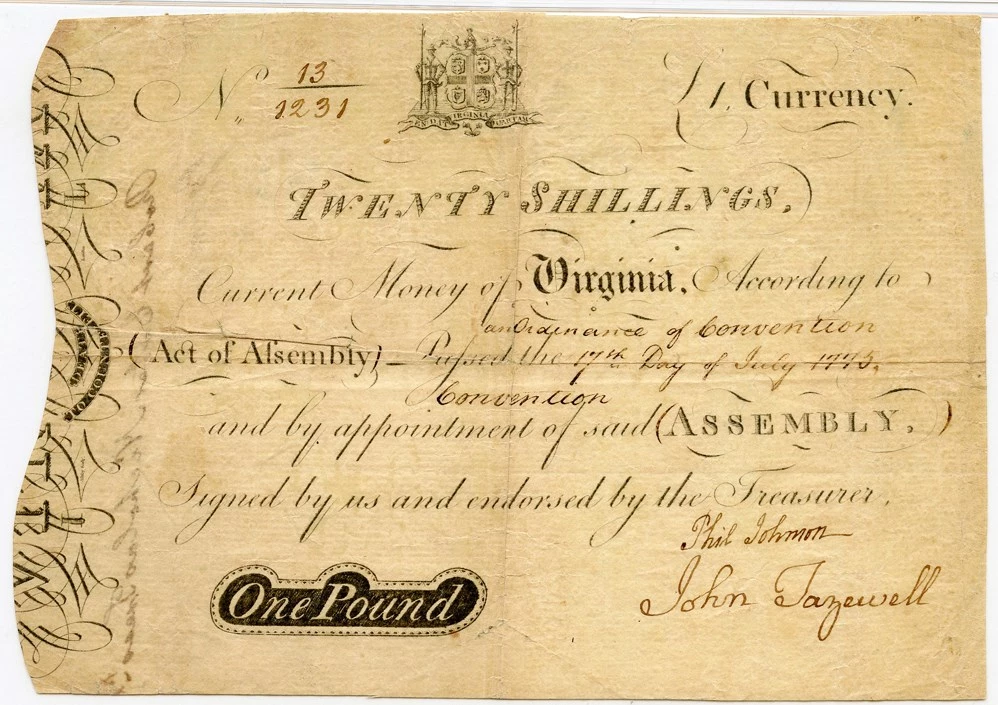 N. 13
1231
EN DAT VIRGINIA QUARTAM
£1. Currency.
TWENTY SHILLINGS.
Current Money of Virginia, According to
an Ordinance of Convention
(Act of Assembly) Passed the 17th Day of July 1775.
Convention
and by appointment of said (ASSEMBLY,)
Signed by us and endorsed by the Treasurer.
Phil Johnson
John Tazewell
One Pound